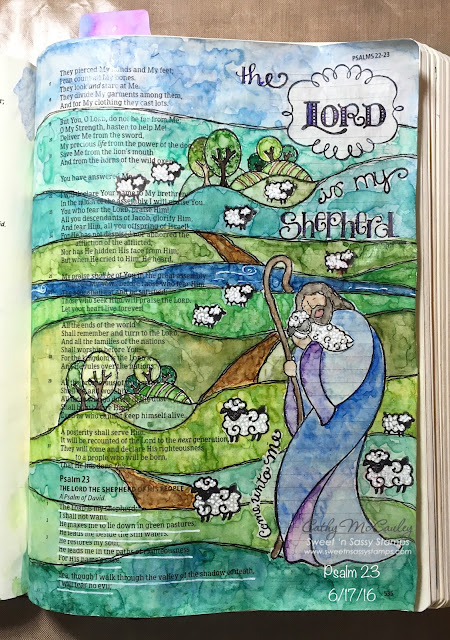 PSALMS 22-23
the
LORD
is my
Shepherd
They pierced My hands and My feet;
I can count all My bones.
They look and stare at Me.
They divide My garments among them,
And for My clothing they cast lots.
But You, O LORD, do not be far from Me;
O My Strength, hasten to help Me!
Deliver Me from the sword,
My precious life from the power of the dog.
Save Me from the lion's mouth
And from the horns of the wild oxen
You have answered Me.
I will declare Your name to My brethren;
In the midst of the assembly I will praise You.
You who fear the LORD, praise Him!
All you descendants of Jacob, glorify Him,
And fear Him, all you offspring of Israel!
For He has not despised nor abhorred the
affliction of the afflicted;
Nor has He hidden His face from Him;
But when He cried to Him, He heard.
My praise shall be of You in the great assembly
before those who fear Him.
Those who seek Him will praise the LORD.
Let your heart live forever!
All the ends of the world
Shall remember and turn to the LORD,
And all the families of the nations
Shall worship before You.
For the kingdom is the LORD's,
And He rules over the nations.
Shall
keep himself alive.
A posterity shall serve Him.
It will be recounted of the Lord to the next generation,
They will come and declare His righteousness
to a people who will be born,
That He has done this.
Psalm 23
THE LORD THE SHEPHERD OF HIS PEOPLE
A Psalm of David.
The LORD is my shepherd;
I shall not want.
He makes me to lie down in green pastures;
He leads me beside the still waters.
He restores my soul;
He leads me in the paths of righteousness
For His name's sake.
Yea, though I walk through the valley of the shadow of death,
I will fear no evil;
come unto Me
Cathy McCauley
Sweet 'n Sassy Stamps
www.sweetnsassystamps.com
Psalm 23
6/17/16
535